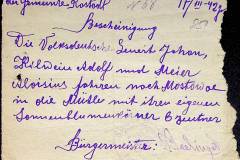 der Gemeinde Rastadt № 68 17/III-42 J.
Bescheinigung
Die Volksdeutsche Senert Johan,
Hilwein Adolf und Meier
Aloisius fahren noch Mostowoe
in die Mühle mit ihren eigenen
Sonnenblumenkörner 6 Zentner
Bürgermeister: